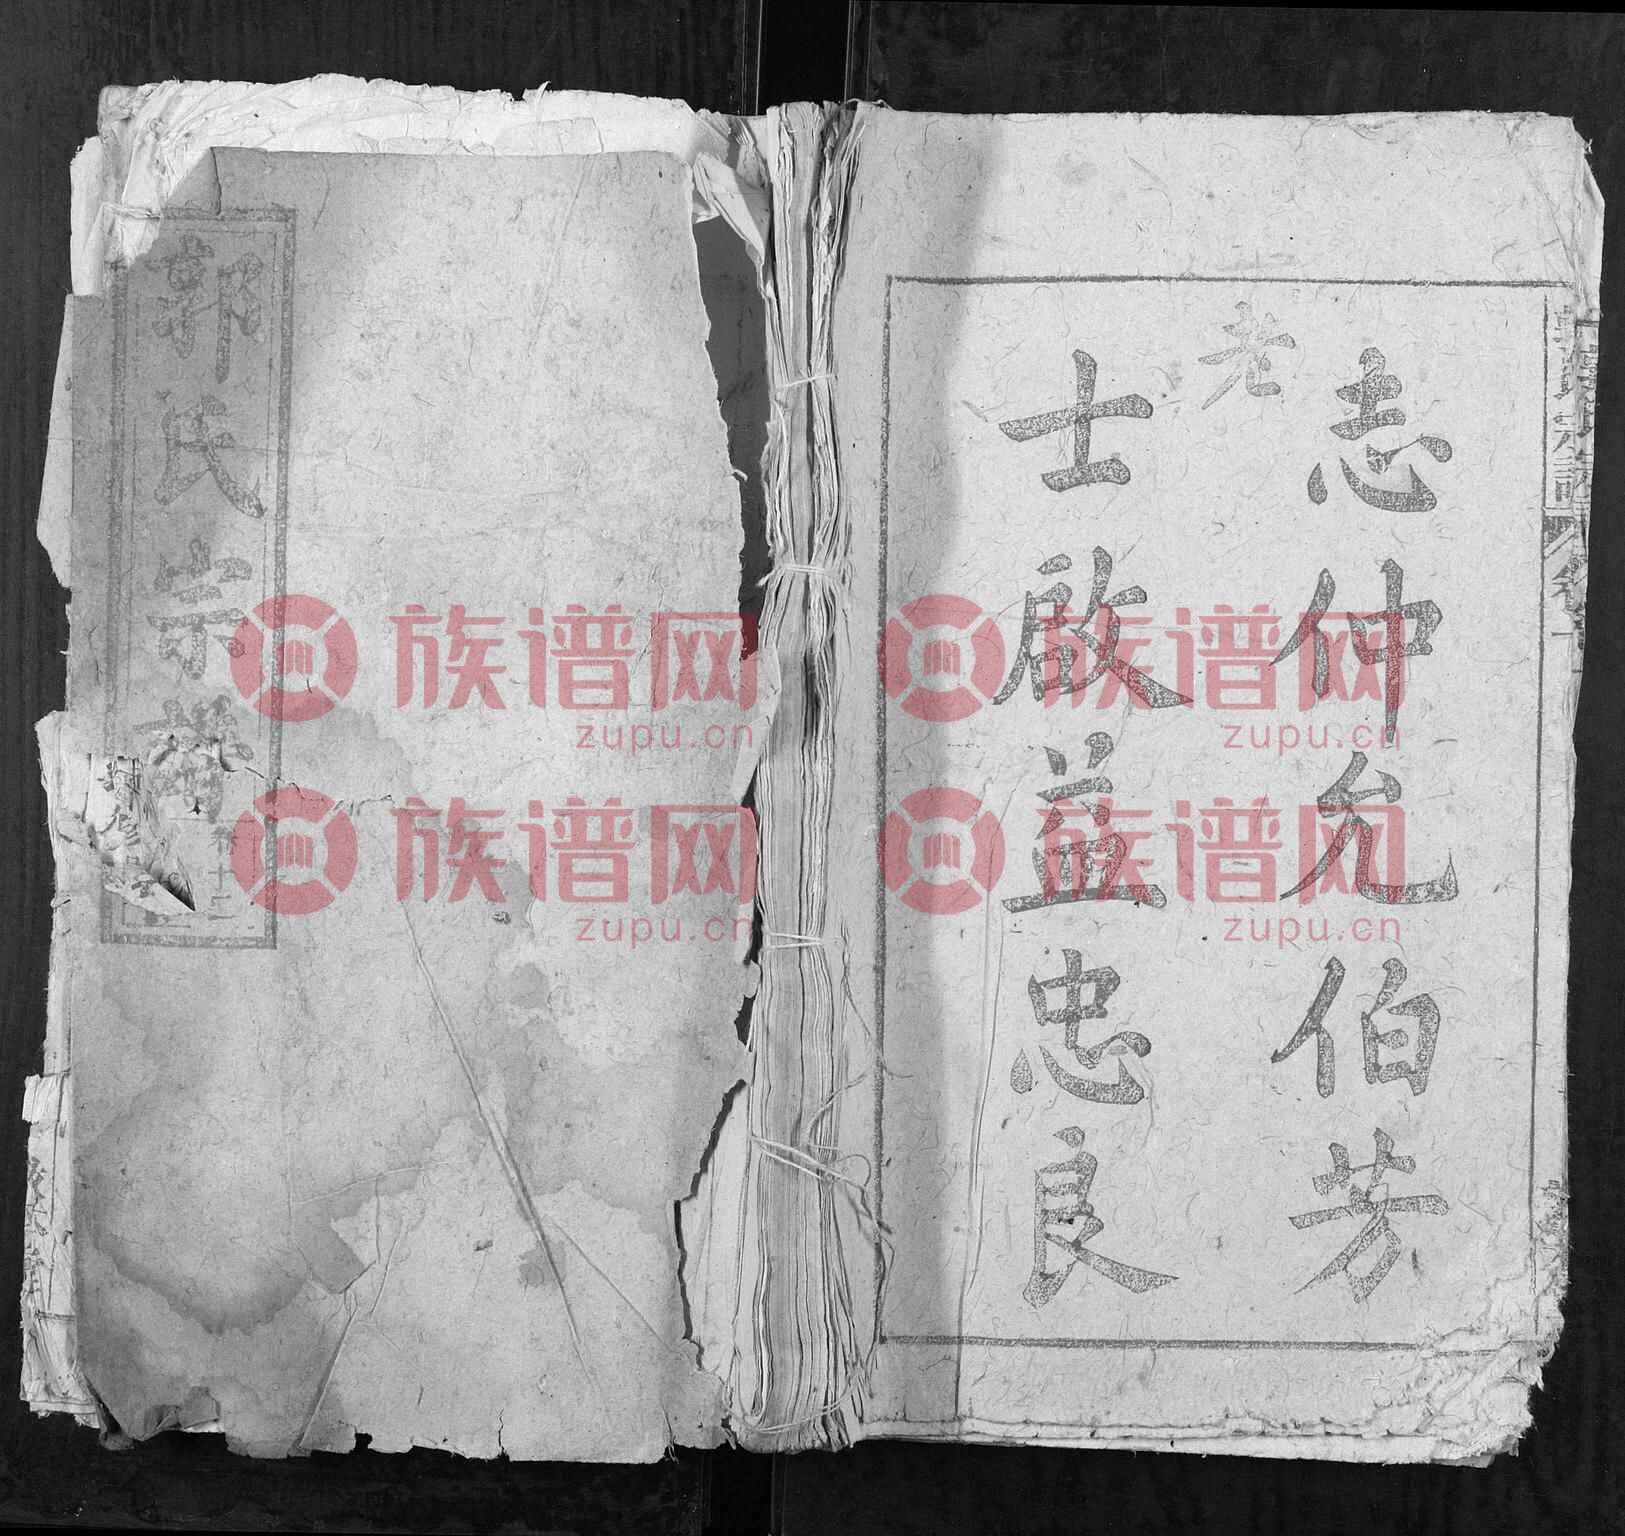 志仲允伯芳
老
士啟益忠良
郭氏宗譜
族谱网
zupu.cn
族谱网
zupu.cn
族谱网
zupu.cn
族谱网
zupu.cn